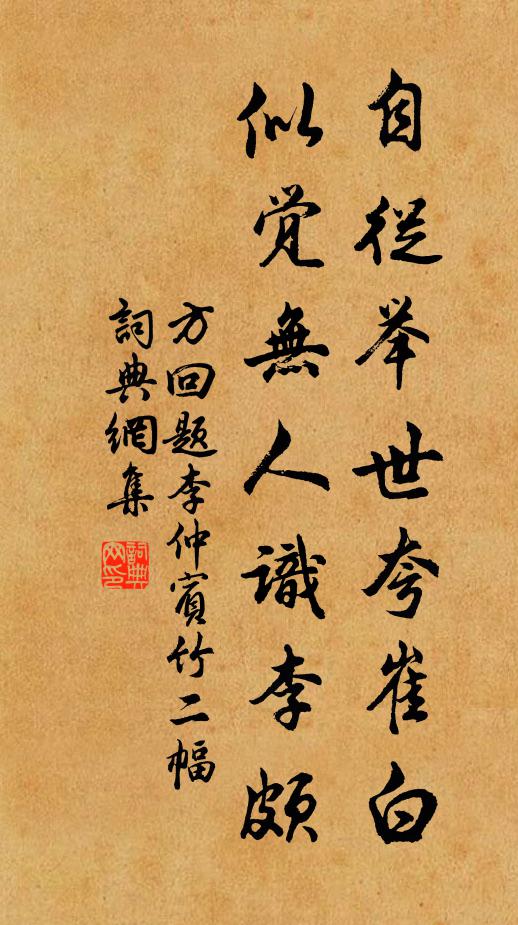 自從举世夸崔白
似覚無人識李頗
方回题李仲賓竹二幅
詞典網集
詞典网印